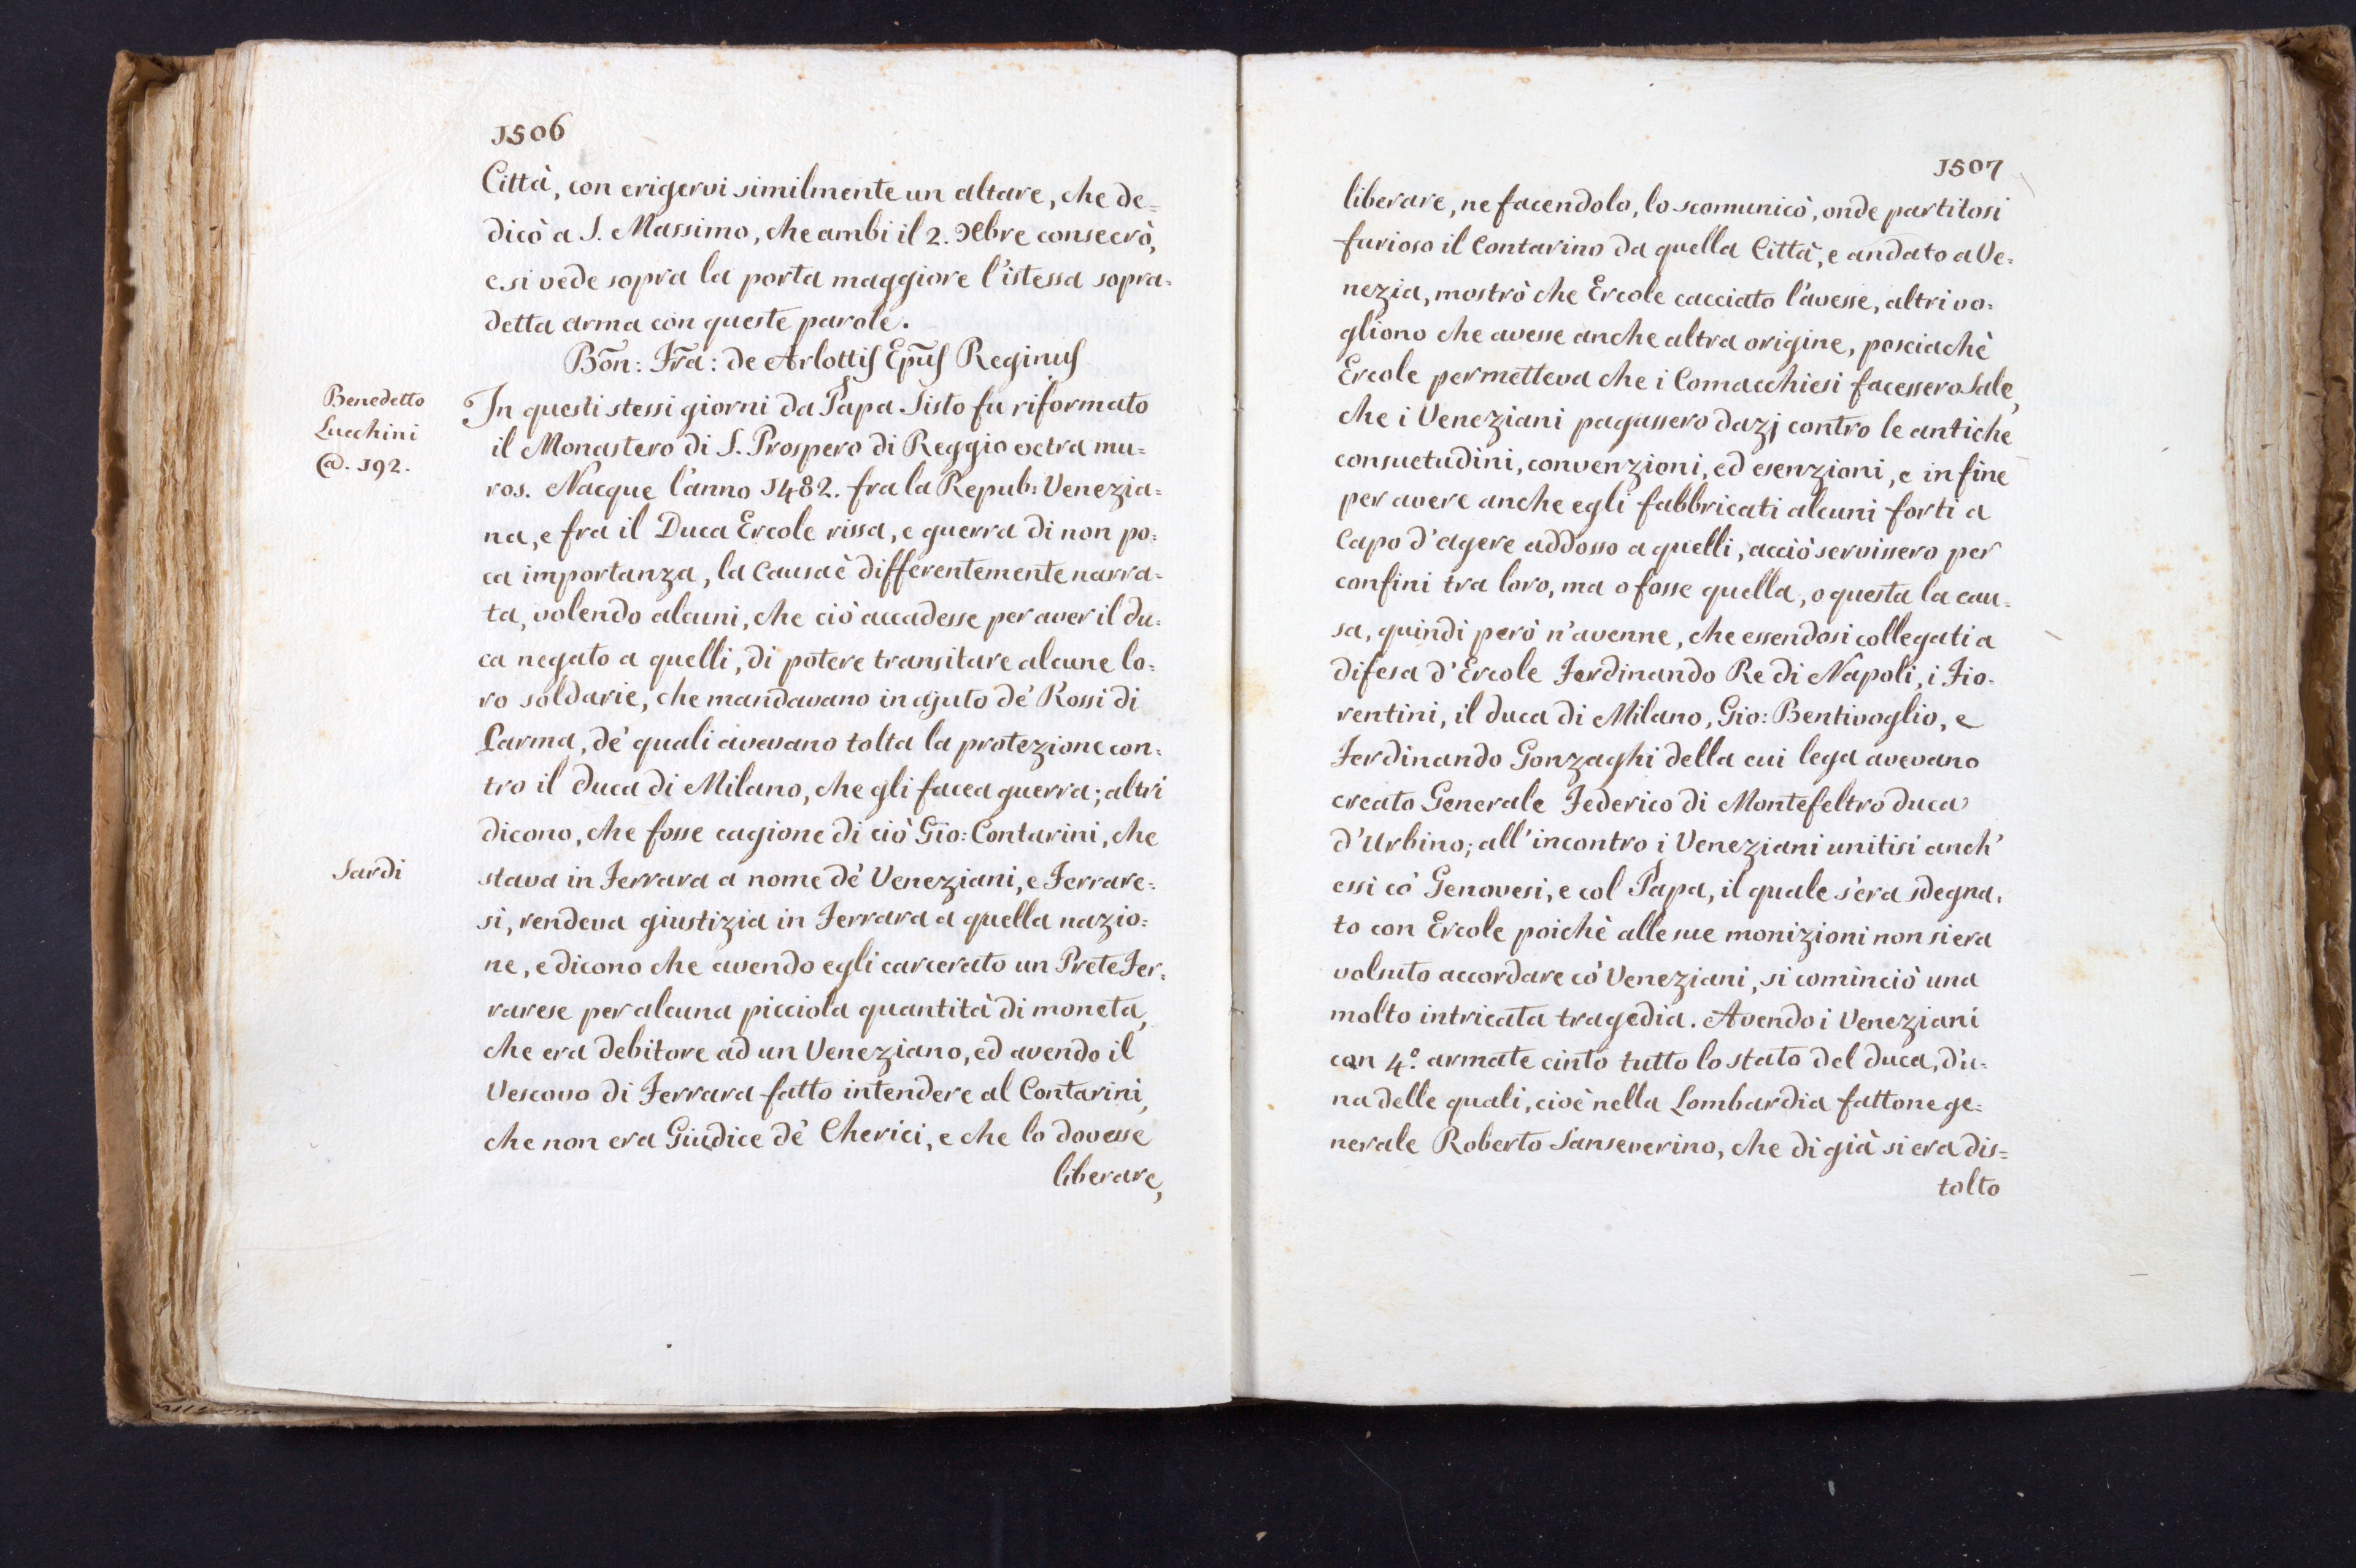 1506
Città, con erigervi similmente un altare, che de=
dicò a S. Massimo, che ambi il 2. Xbre consecrò,
e si vede sopra la porta maggiore l'istessa sopra=
detta arma con queste parole.
Bōn: Fr̄a: de Arlottis Ep̄us Reginus
Benedetto
Lucchini
@. 192.
In questi stessi giorni da Papa Sisto fu riformato
il Monastero di S. Prospero di Reggio extra mu=
ros. Nacque l'anno 1482. fra la Repub: Venezia=
na, e fra il Duca Ercole rissa, e guerra di non po=
ca importanza, la Causa è differentemente narra=
ta, volendo alcuni, che ciò accadesse per aver il du=
ca negato a quelli, di potere transitare alcune lo=
ro soldarie, che mandavano in ajuto de' Rossi di
Parma, de' quali avevano tolta la protezione con=
tro il duca di Milano, che gli facea guerra; altri
dicono, che fosse cagione di ciò Gio: Contarini, che
Sardi
stava in Ferrara a nome de' Veneziani, e Ferrare=
si, rendeva giustizia in Ferrara a quella nazio=
ne, e dicono che avendo egli carcerato un Prete Fer=
rarese per alcuna picciola quantità di moneta,
che era debitore ad un Veneziano, ed avendo il
Vescovo di Ferrara fatto intendere al Contarini,
che non era Giudice de' Cherici, e che lo dovesse
liberare,
1507
liberare, ne facendolo, lo scomunicò, onde partitosi
furioso il Contarino da quella Città, e andato a Ve=
nezia, mostrò che Ercole cacciato l'avesse, altri vo=
gliono che avesse anche altra origine, posciachè
Ercole permetteva che i Comacchiesi facessero Sale,
che i Veneziani pagassero dazj contro le antiche
consuetudini, convenzioni, ed esenzioni, e in fine
per avere anche egli fabbricati alcuni forti a
Capo d'agere addosso a quelli, acciò servissero per
confini tra loro, ma o fosse quella, o questa la cau=
sa, quindi però n'avenne, che essendosi collegati a
difesa d'Ercole Ferdinando Re di Napoli, i Fio=
rentini, il duca di Milano, Gio: Bentivoglio, e
Ferdinando Gonzaghi della cui lega avevano
creato Generale Federico di Montefeltro duca
d'Urbino; all'incontro i Veneziani unitisi anch'
essi co' Genovesi, e col Papa, il quale s'era sdegna=
to con Ercole poichè alle sue monizioni non si era
volsuto accordare co' Veneziani, si cominciò una
molto intricata tragedia. Avendo i Veneziani
con 4.º armate cinto tutto lo stato del duca, d'u=
na delle quali, cioè nella Lombardia fattone ge=
nerale Roberto Sanseverino, che di già si era dis=
tolto